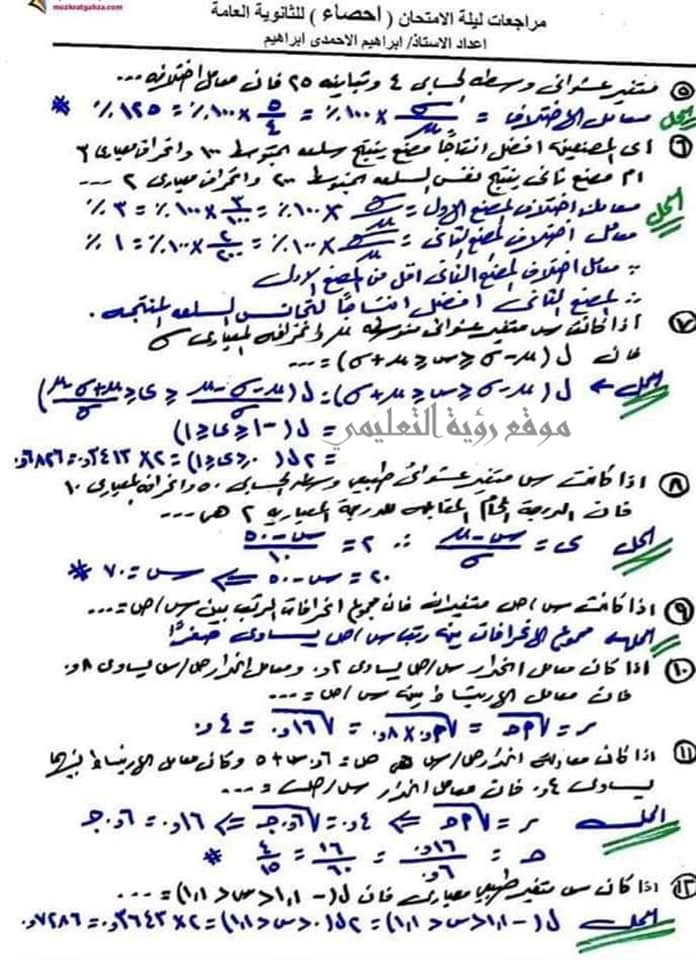 mozkratgahza.com
مراجعات ليلة الامتحان ( احصاء ) للثانوية العامة
اعداد الاستاذ/ ابراهيم الاحمدى ابراهيم
٥ متغير عشوائى وسطه الحسابى ٤ وتباينه ٢٥ فان معامل اختلافه ...
الحل معامل الاختلاف = σ/μ × ١٠٠٪ = ٥/٤ × ١٠٠٪ = ١٢٥٪ *
٦ اى المصنعين افضل انتاجًا مصنع ينتج سلعه المتوسط ١٠٠ وانحراف معيارى ٣
ام مصنع ثانى ينتج نفس السلعه المتوسط ٢٠٠ وانحراف معيارى ٢ ...
الحل معامل اختلاف المصنع الاول = σ/μ × ١٠٠٪ = ٣/١٠٠ × ١٠٠٪ = ٣٪
معامل اختلاف المصنع الثانى = σ/μ × ١٠٠٪ = ٢/٢٠٠ × ١٠٠٪ = ١٪
∵ معامل اختلاف المصنع الثانى اقل من المصنع الاول
∴ المصنع الثانى افضل انتاجًا لتجانس السلعه المنتجه .
٧ اذا كانت س متغير عشوائى متوسطه μ وانحرافه المعيارى σ
فان ل(μ - σ ≤ س ≤ μ + σ) = ...
الحل ← ل(μ - σ ≤ س ≤ μ + σ) = ل((μ - σ - μ)/σ ≤ ى ≤ (μ + σ - μ)/σ)
= ل(-١ ≤ ى ≤ ١)
موقع رؤية التعليمي
= ٢ل(٠ ≤ ى ≤ ١) = ٢ × ٣٤١٣و. = ٦٨٢٦و.
٨ اذا كانت س متغير عشوائى طبيعى وسطه الحسابى ٥٠ وانحرافه المعيارى ١٠
فان الدرجة الخام المقابله للدرجة المعياريه ٢ هى ...
الحل ى = (س - μ)/σ ∴ ٢ = (س - ٥٠)/١٠
٢٠ = س - ٥٠ ⇐ س = ٧٠ *
٩ اذا كانت س/ص متغيران فان مجموع انحرافات الرتب بين س/ص = ...
الحل مجموع الانحرافات بين رتب س/ص يساوى صفرًا
١٠ اذا كان معامل انحدار س/ص يساوى ٢و. ومعامل انحدار ص/س يساوى ٨و.
فان معامل الارتباط بين س/ص = ...
ر = √م هـ = √٢و. × ٨و. = √١٦و. = ٤و.
١١ اذا كان معادلة انحدار ص/س هى ص = ٦و. س + ٥ وكان معامل الارتباط بينهما
يساوى ٤و. فان معامل انحدار س/ص = ...
الحل ر = √م هـ ⇐ ٤و. = √٦و. جـ ⇐ ١٦و. = ٦و. جـ
حـ = ١٦و./٦و. = ١٦/٦٠ = ٤/١٥ *
١٢ اذا كان س متغير طبيعى معيارى فان ل(-١,١ < س < ١,١) = ...
الحل ل(-١,١ < س < ١,١) = ٢ل(٠ < س < ١,١) = ٢ × ٣٦٤٣و. = ٧٢٨٦و.